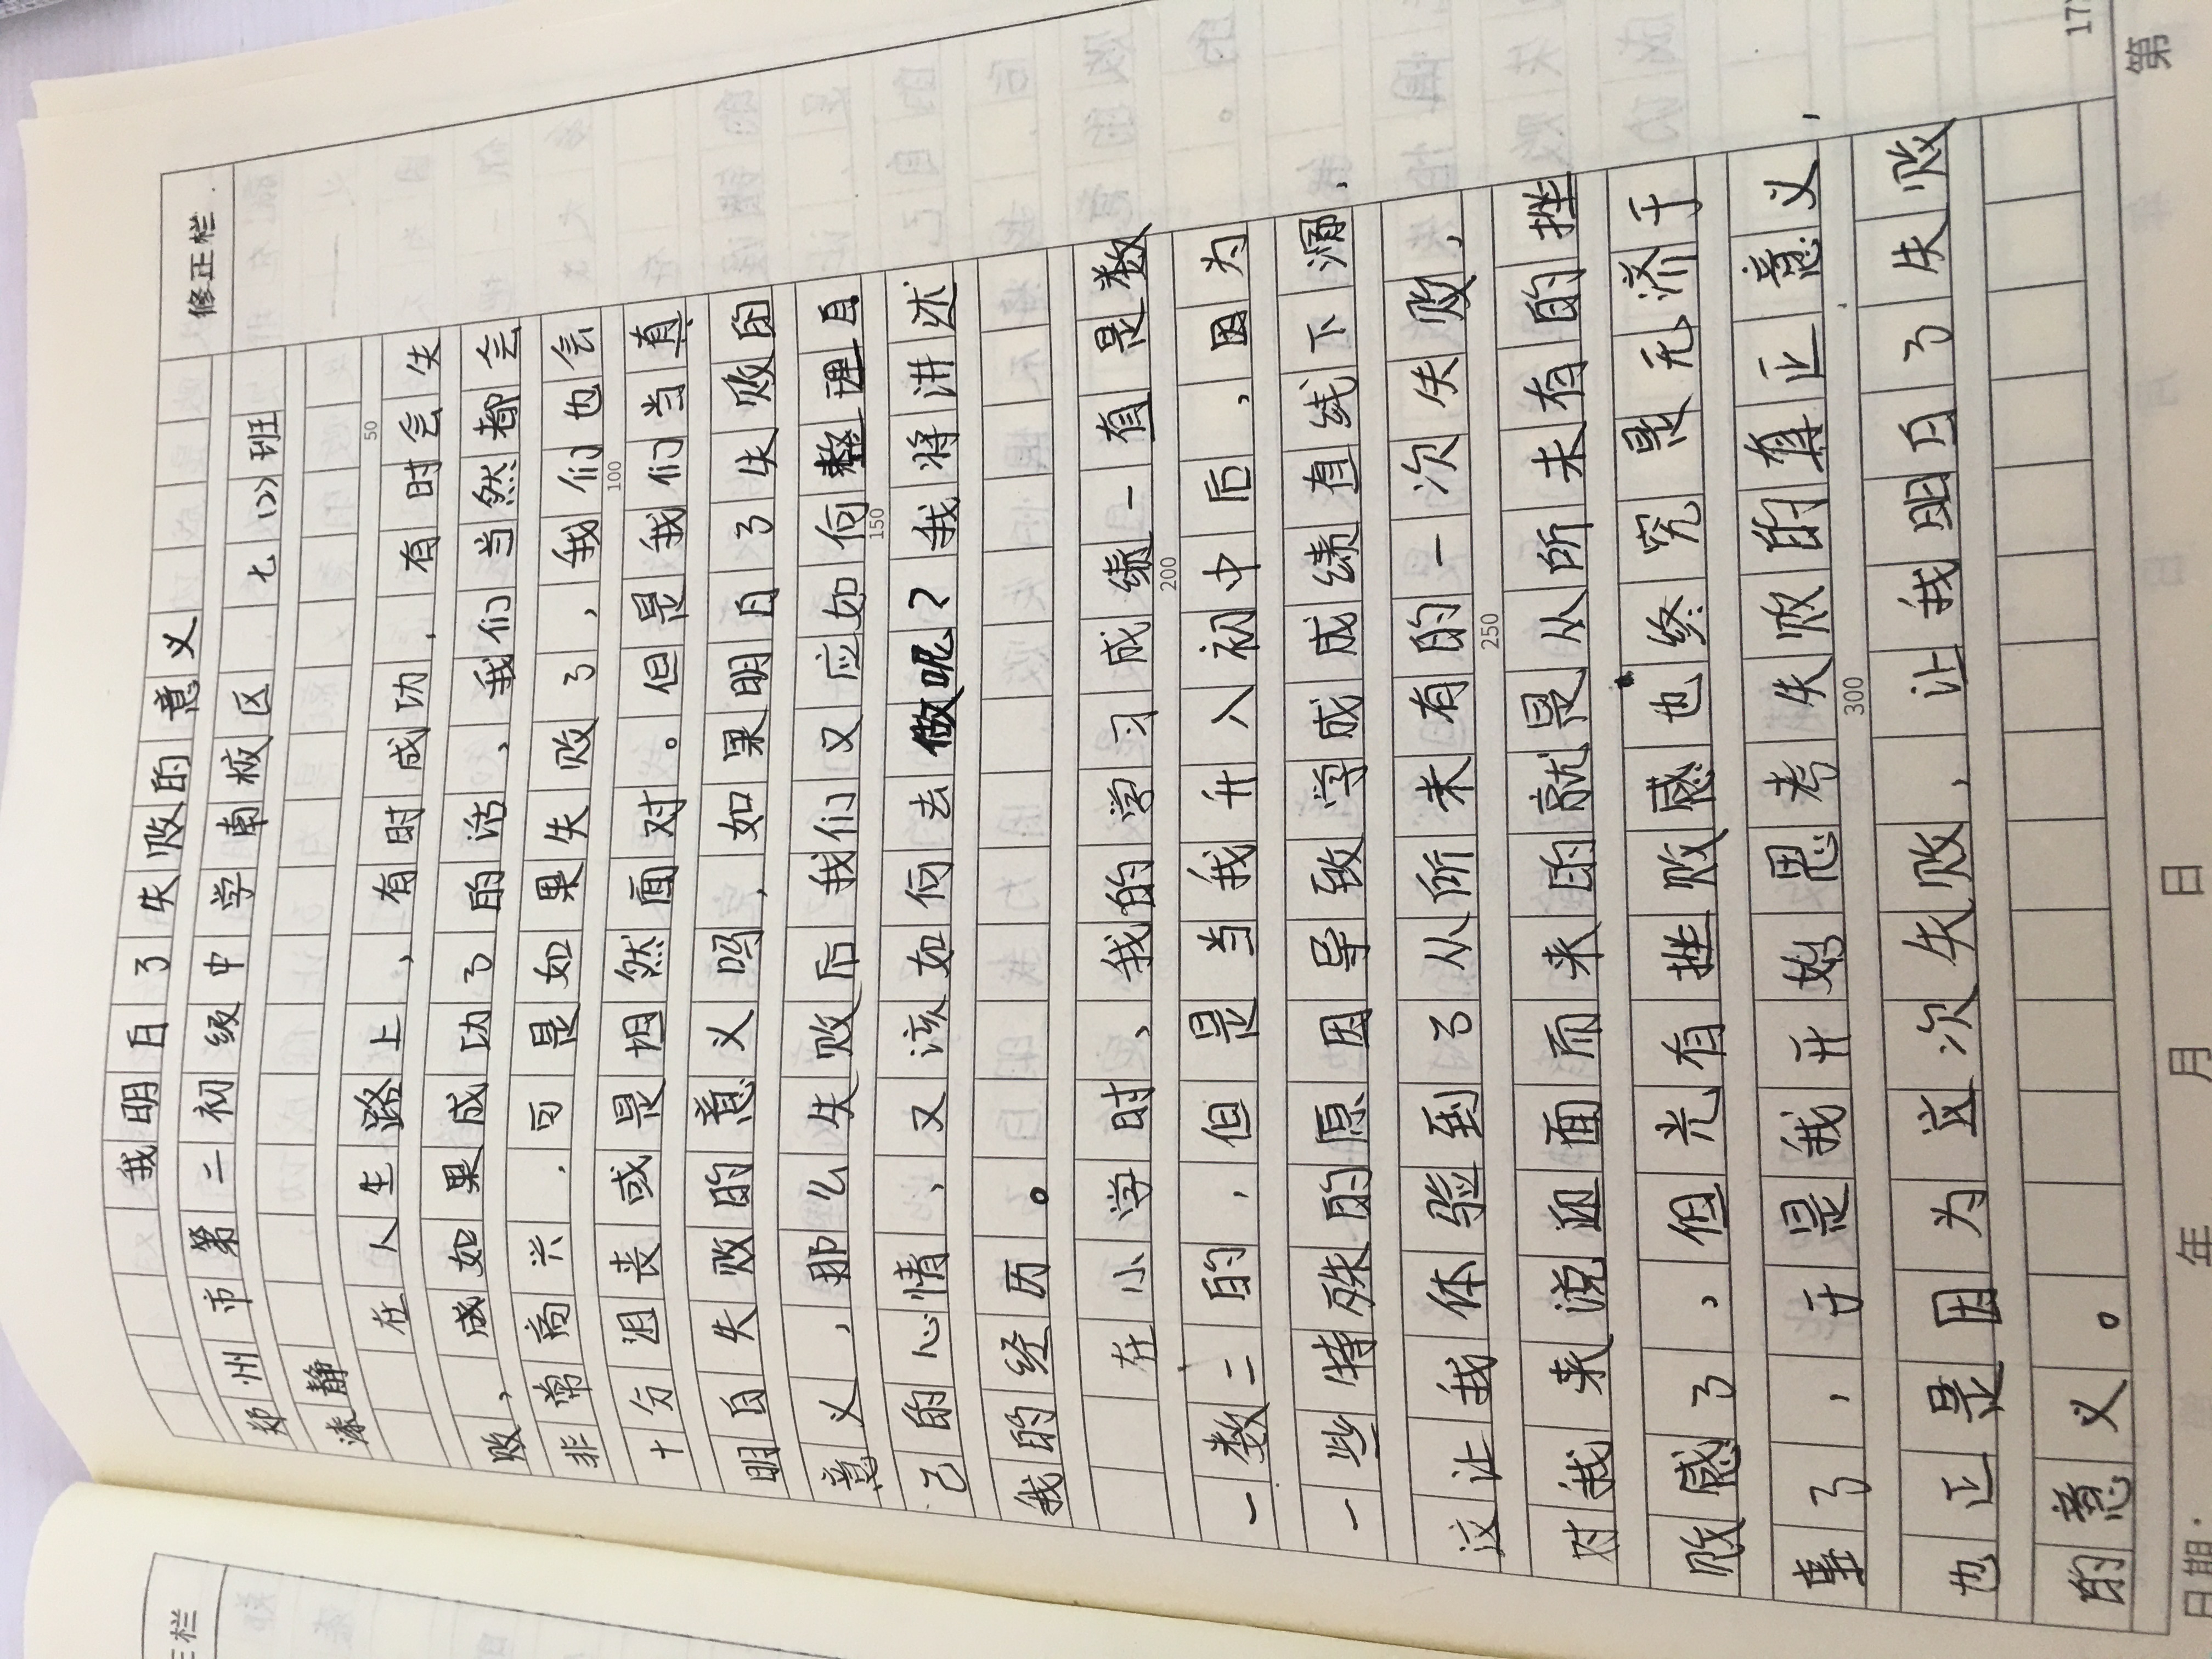 修正栏
我明白了失败的意义
郑州市第二初级中学南校区 七(2)班
漆静
在人生路上,有时成功,有时会失
50
败,成如果成功了的话,我们当然都会
非常高兴,可是如果失败了,我们也会
100
十分沮丧或是坦然面对。但是我们当真
明白失败的意义吗,如果明白了失败的
意义,那么失败后我们又应如何整理自
150
己的心情,又该如何去做呢?我将讲述
我的经历。
在小学时、我的学习成绩一直是数
200
一数二的,但是当我升入初中后,因为
一些特殊的原因导致学成成绩直线下滑,
这让我体验到了从所未有的一次失败,
250
对我来说迎面而来的就是从所未有的挫
败感了,但光有挫败感也终究是无济于
事了,于是我开始思考失败的真正意义,
300
也正是因为这次失败,让我明白了失败
的意义。
日期: 年 月 日 第
三栏